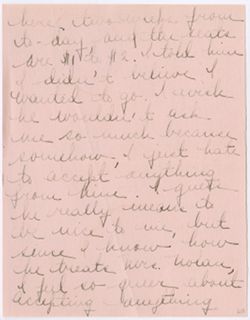 here two weeks from
to-day and the seats
are $1 to $2. I told him
I didn't believe I
wanted to go. I wish
he wouldn't ask
me so much because
somehow, I just hate
to accept anything
from him. I guess
he really means to
be nice to me, but
since I know how
he treats Mrs. Nolan,
I feel so queer about
accepting anything